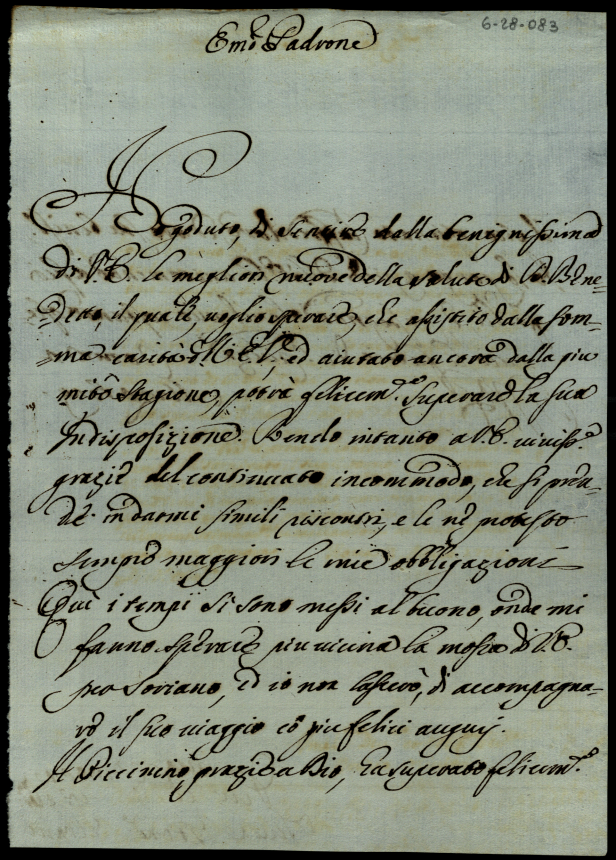 6-28-083
Emo Padrone
Ho goduto, di sentire dalla benignissima
di V.E. le migliori nuove della salute di D. Bene=
=detto, il quale, voglio sperare, che assistito dalla som=
=ma carità dell'E.V., ed aiutato ancora dalla piu
mite Stagione, potrà felicem.te superare la sua
Indisposizione. Rendo intanto a V.E. viviss.e
grazie del continuato incommodo, che si pren=
de in darmi simili riscontri, e le ne protesto
sempre maggiori le mie obbligazioni
Qui i tempi si sono messi al buono, onde mi
fanno sperare piu vicina la mossa di V.E.
per Soriano, ed io non lascerò, di accompagna=
re il suo viaggio cõ piu felici augurij.
Il Piccinino, grazie a Dio, ha superato felicem.te